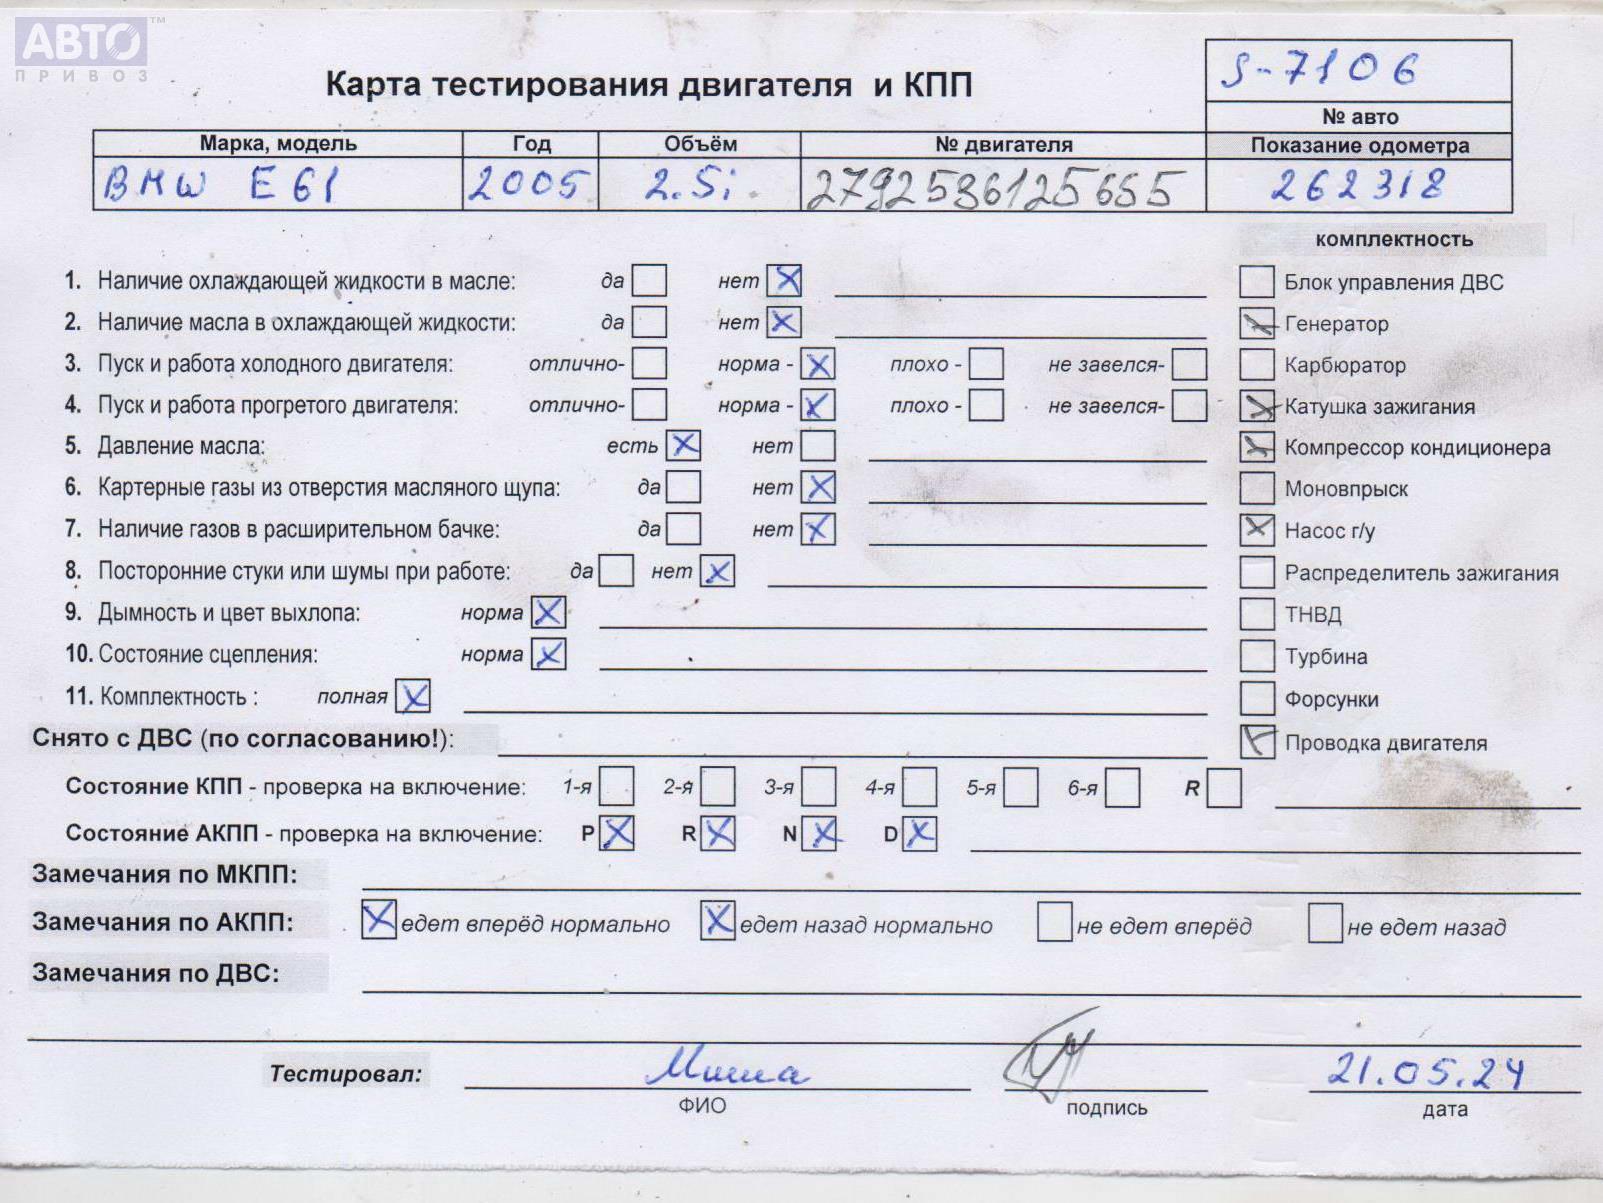 АВТО™
ПРИВОЗ
Карта тестирования двигателя и КПП
S-7106
№ авто
Марка, модель Год Объём № двигателя Показание одометра
BMW E61 2005 2.5i 2792536125655 262318
комплектность
1. Наличие охлаждающей жидкости в масле: да нет X Блок управления ДВС
2. Наличие масла в охлаждающей жидкости: да нет X X Генератор
3. Пуск и работа холодного двигателя: отлично- норма - X плохо - не завелся- Карбюратор
4. Пуск и работа прогретого двигателя: отлично- норма - X плохо - не завелся- X Катушка зажигания
5. Давление масла: есть X нет X Компрессор кондиционера
6. Картерные газы из отверстия масляного щупа: да нет X Моновпрыск
7. Наличие газов в расширительном бачке: да нет X X Насос г/у
8. Посторонние стуки или шумы при работе: да нет X Распределитель зажигания
9. Дымность и цвет выхлопа: норма X ТНВД
10. Состояние сцепления: норма X Турбина
11. Комплектность : полная X Форсунки
Снято с ДВС (по согласованию!): X Проводка двигателя
Состояние КПП - проверка на включение: 1-я 2-я 3-я 4-я 5-я 6-я R
Состояние АКПП - проверка на включение: P X R X N X D X
Замечания по МКПП:
Замечания по АКПП: X едет вперёд нормально X едет назад нормально не едет вперёд не едет назад
Замечания по ДВС:
Тестировал: Миша 21.05.24
ФИО подпись дата